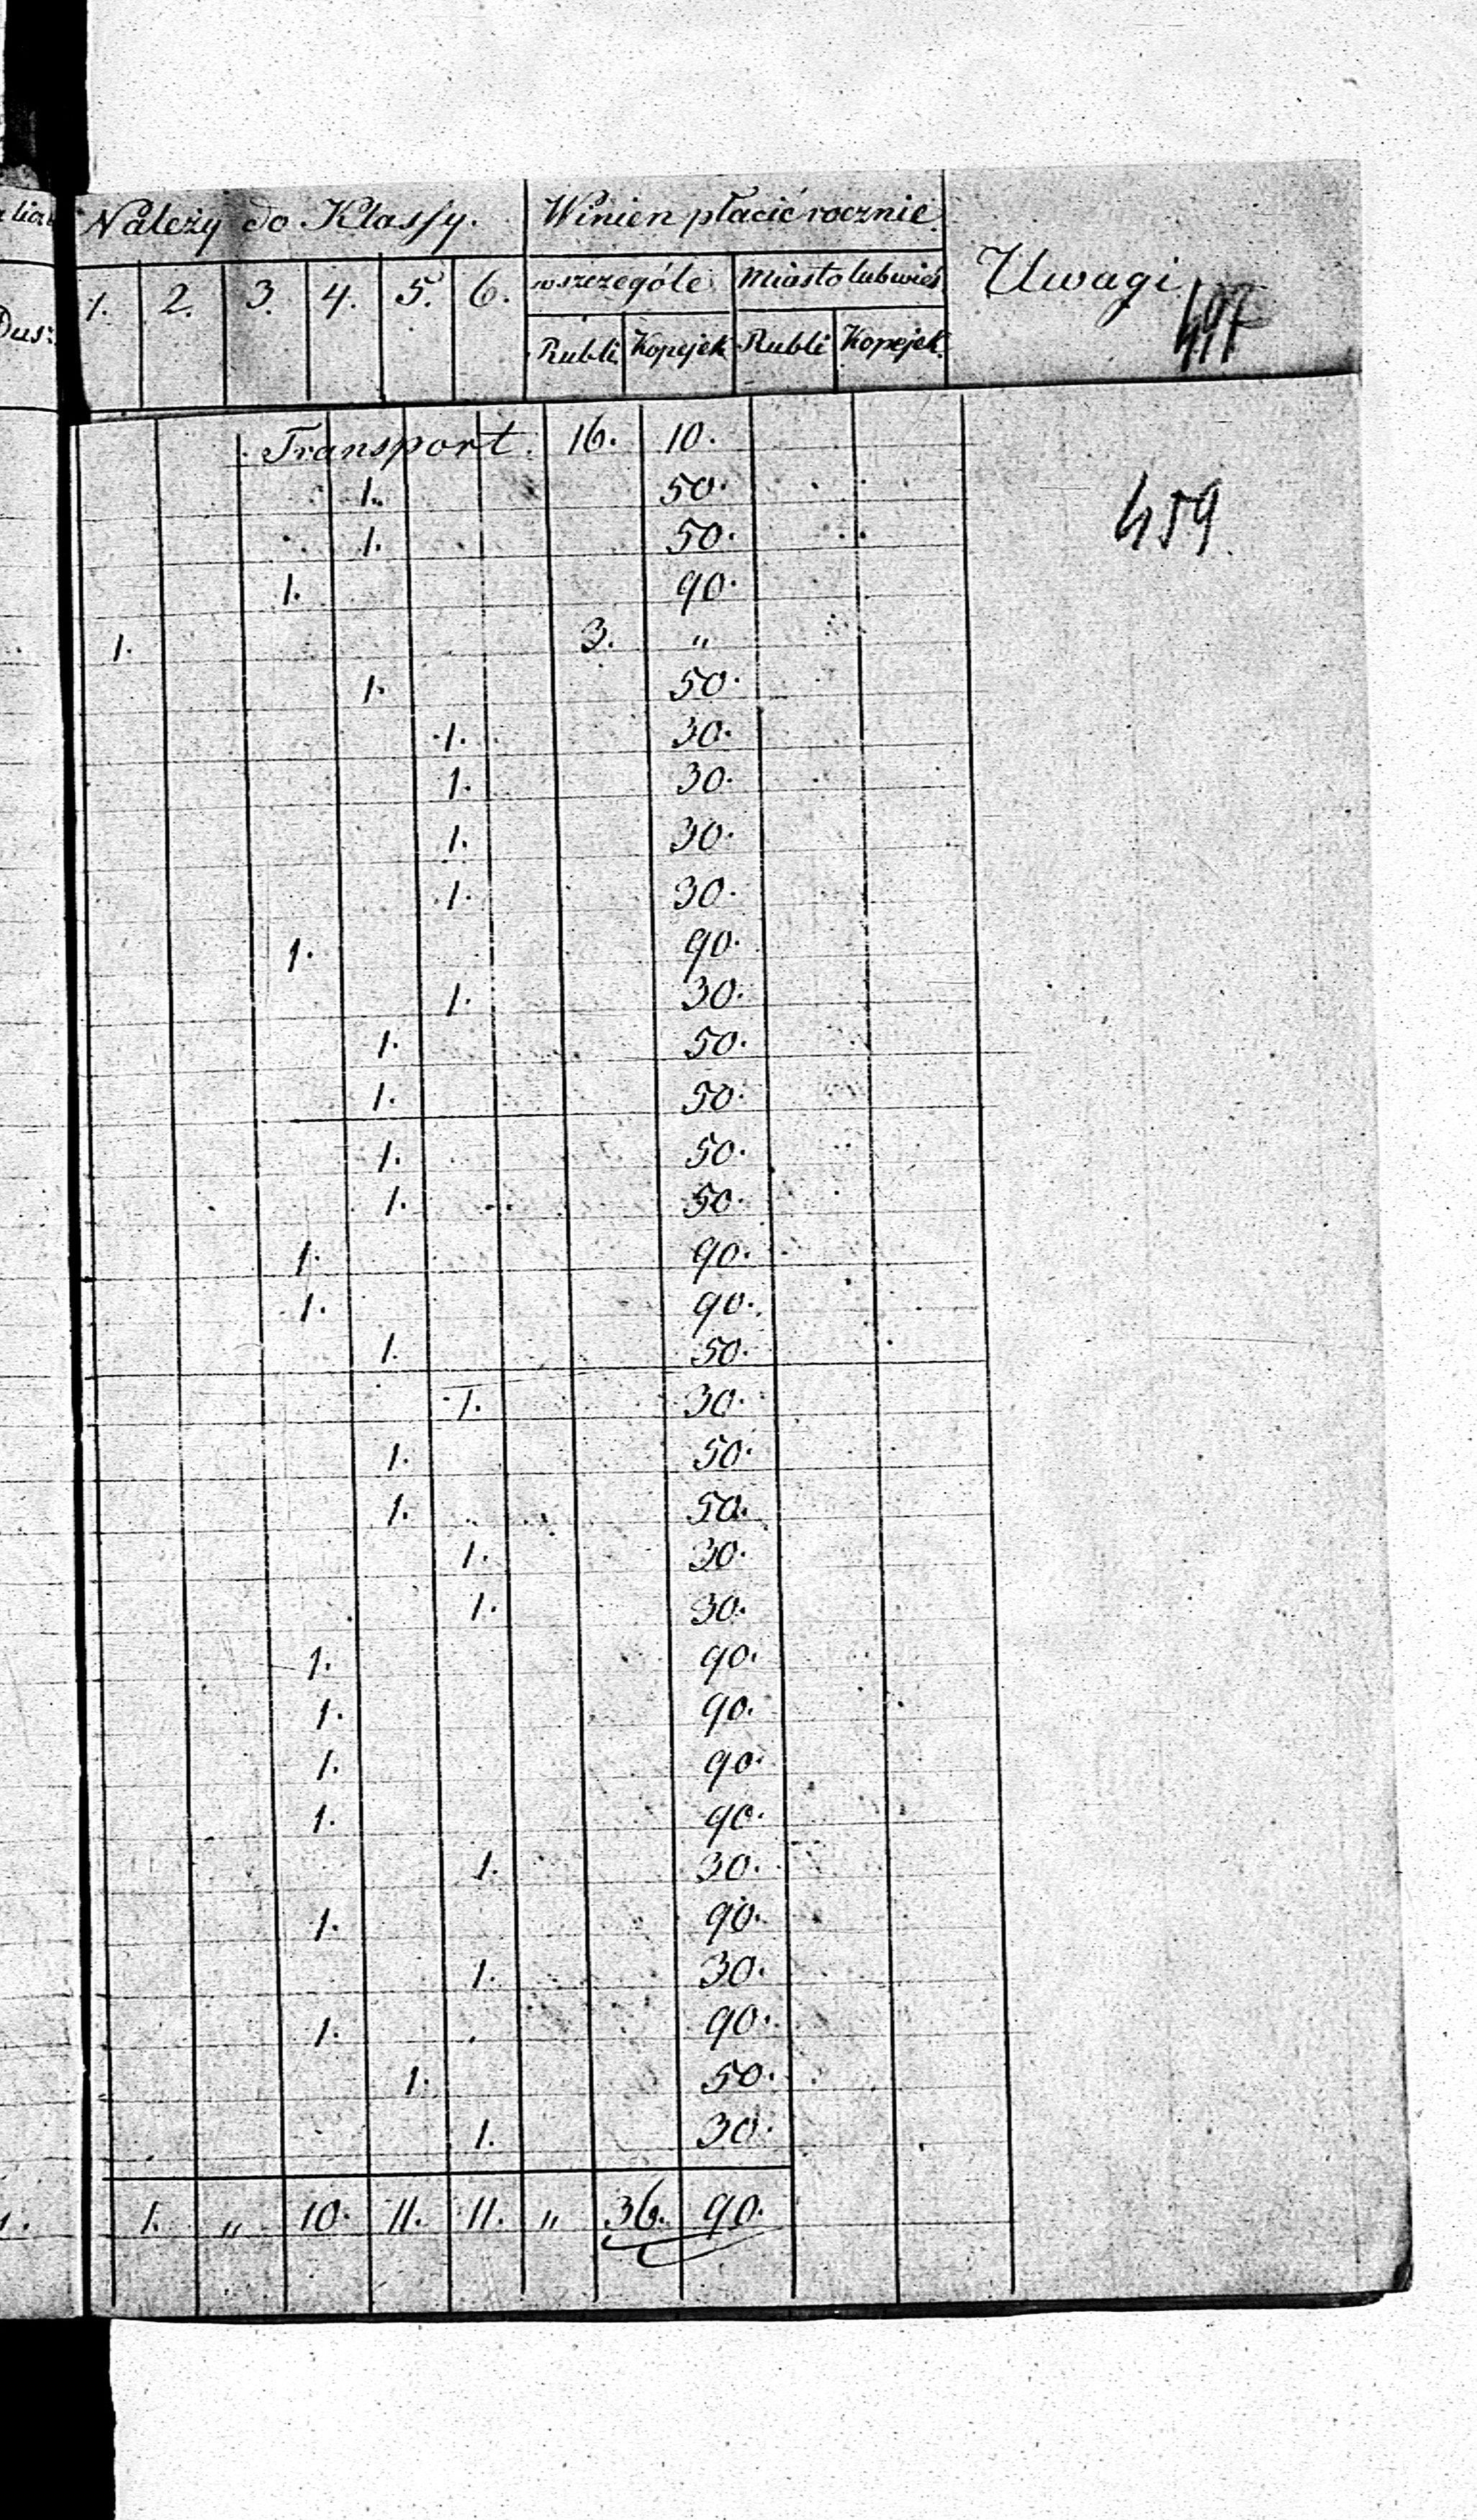 Należy do Klassy. Winien płacić rocznie. Uwagi
w szczególe Miasto lub wieś
1. 2. 3. 4. 5. 6. Rubli Kopejek Rubli Kopejek
Dus:
Transport. 16. 10.
1. 50.
459.
1. 50.
1. 90.
1. 3. "
1. 50.
1. 30.
1. 30.
1. 30.
1. 30.
1. 90.
1. 30.
1. 50.
1. 50.
1. 50.
1. 50.
1. 90.
1. 90.
1. 50.
1. 30.
1. 50.
1. 50.
1. 30.
1. 30.
1. 90.
1. 90.
1. 90.
1. 90.
1. 30.
1. 90.
1. 30.
1. 90.
1. 50.
1. 30.
1. " 10. 11. 11. " 36. 90.